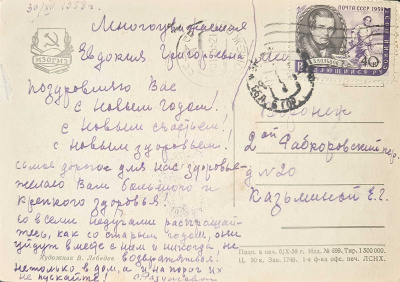 30/XII 1959 г.
Многоуважаемая
Евдокия Григорьевна
Поздравляю Вас
с Новым годом!
с Новым счастьем!
с Новым здоровьем!
самое дорогое для нас здоровье -
желаю Вам большого и
крепкого здоровья!
со всеми недугами распрощай-
тесь, как со старым годом, они
уйдут вместе с ним и никогда не
возвратятся.
Не только в дом, а и на порог их
не пускайте!
ИЗОГИЗ
Художник В. Лебедев
ПОЧТА СССР 1959
40
Воронеж
2ой Фабкоровский пер.
д №20
Казьминой Е.Г.
Подп. к печ.
Изд. № 699. Тир. 1 500 000.
Ц. 10 к. Зак. 1-я ф-ка офс. печ. ЛСНХ.